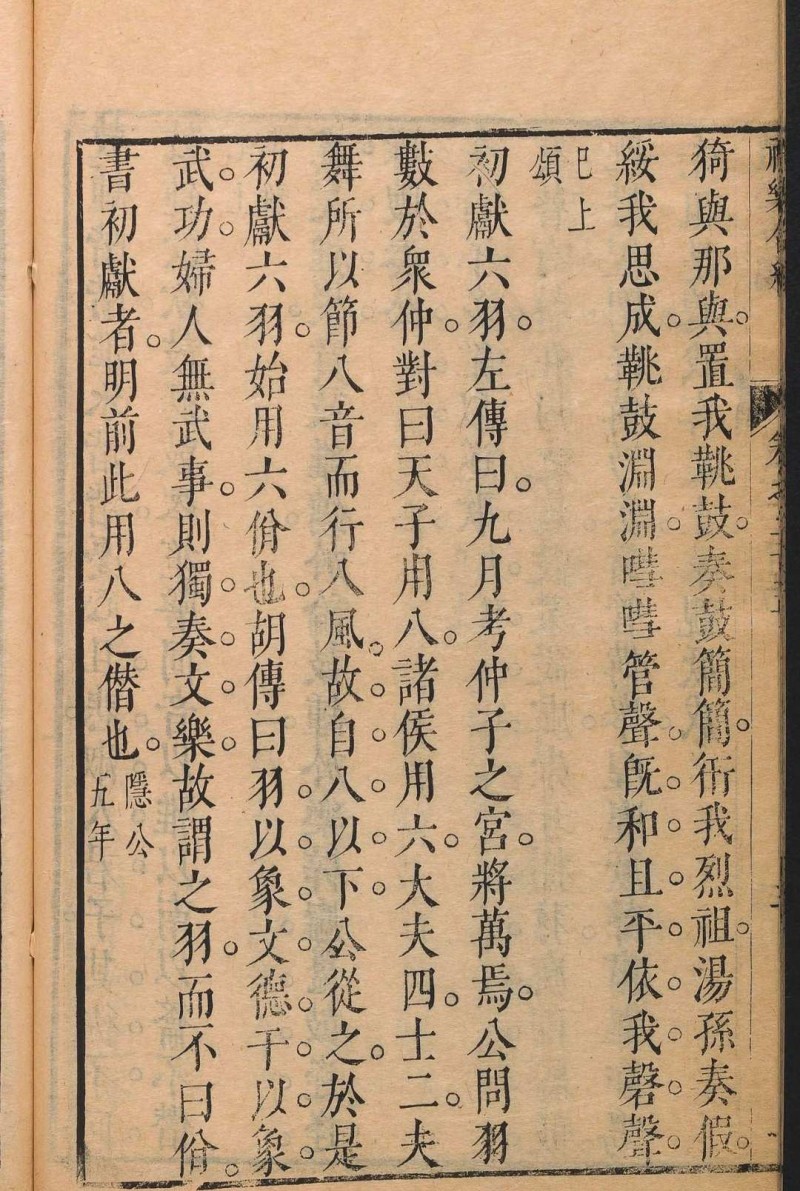 猗與那與置我鞉鼓奏鼓簡簡衎我烈祖湯孫奏假
綏我思成鞉鼓淵淵嘒嘒管聲旣和且平依我磬聲
巳上
頌
初獻六羽左傳曰九月考仲子之宮將萬焉公問羽
數於衆仲對曰天子用八諸侯用六大夫四士二夫
舞所以節八音而行八風故自八以下公從之於是
初獻六羽始用六佾也胡傳曰羽以象文德干以象
武功婦人無武事則獨奏文樂故謂之羽而不曰佾
書初獻者明前此用八之僣也
隱公
五年